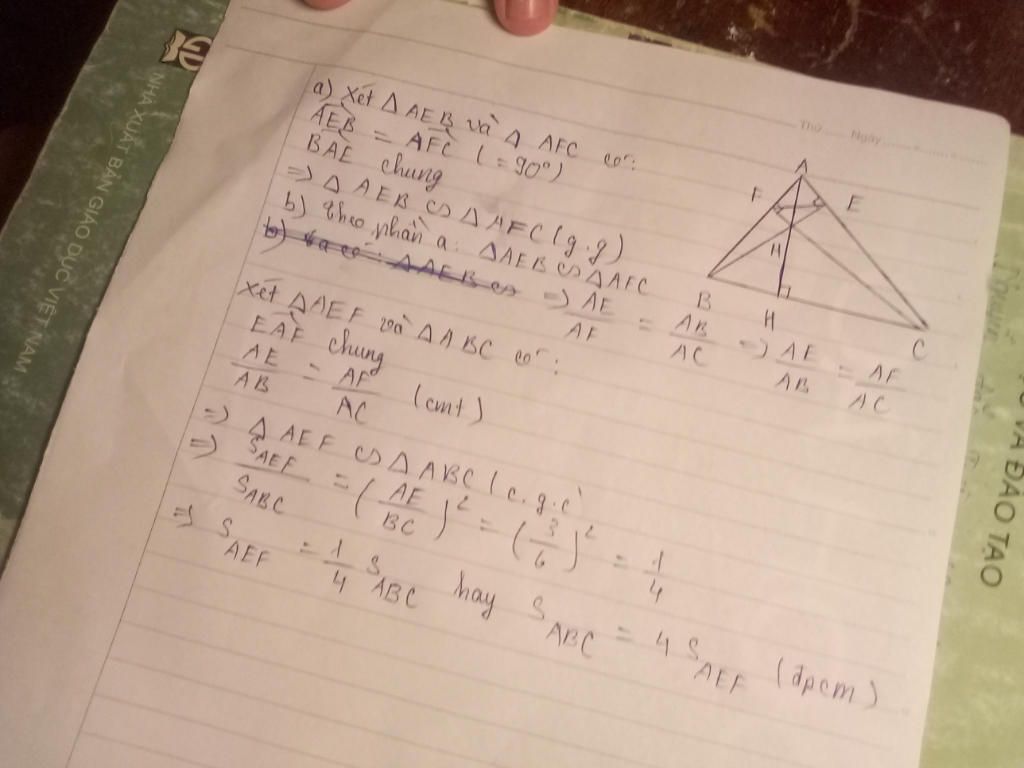 a) Xét Δ AEB và Δ AFC có:
AEB = AFC (= 90°)
BAE chung
=> Δ AEB ∽ Δ AFC (g.g)
b) theo phần a: ΔAEB ∽ ΔAFC
b) Ta có: ΔAEB ∽ => AE/AF = AB/AC => AE/AB = AF/AC
Xét ΔAEF và ΔABC có:
EAF chung
AE/AB = AF/AC (cmt)
=> Δ AEF ∽ Δ ABC (c.g.c)
=> S AEF / S ABC = (AE/BC)² = (3/6)² = 1/4
=> S AEF = 1/4 S ABC hay S ABC = 4 S AEF (đpcm)
A
F
E
H
B
H
C
Thứ Ngày
NHÀ XUẤT BẢN GIÁO DỤC VIỆT NAM
VÀ ĐÀO TẠO